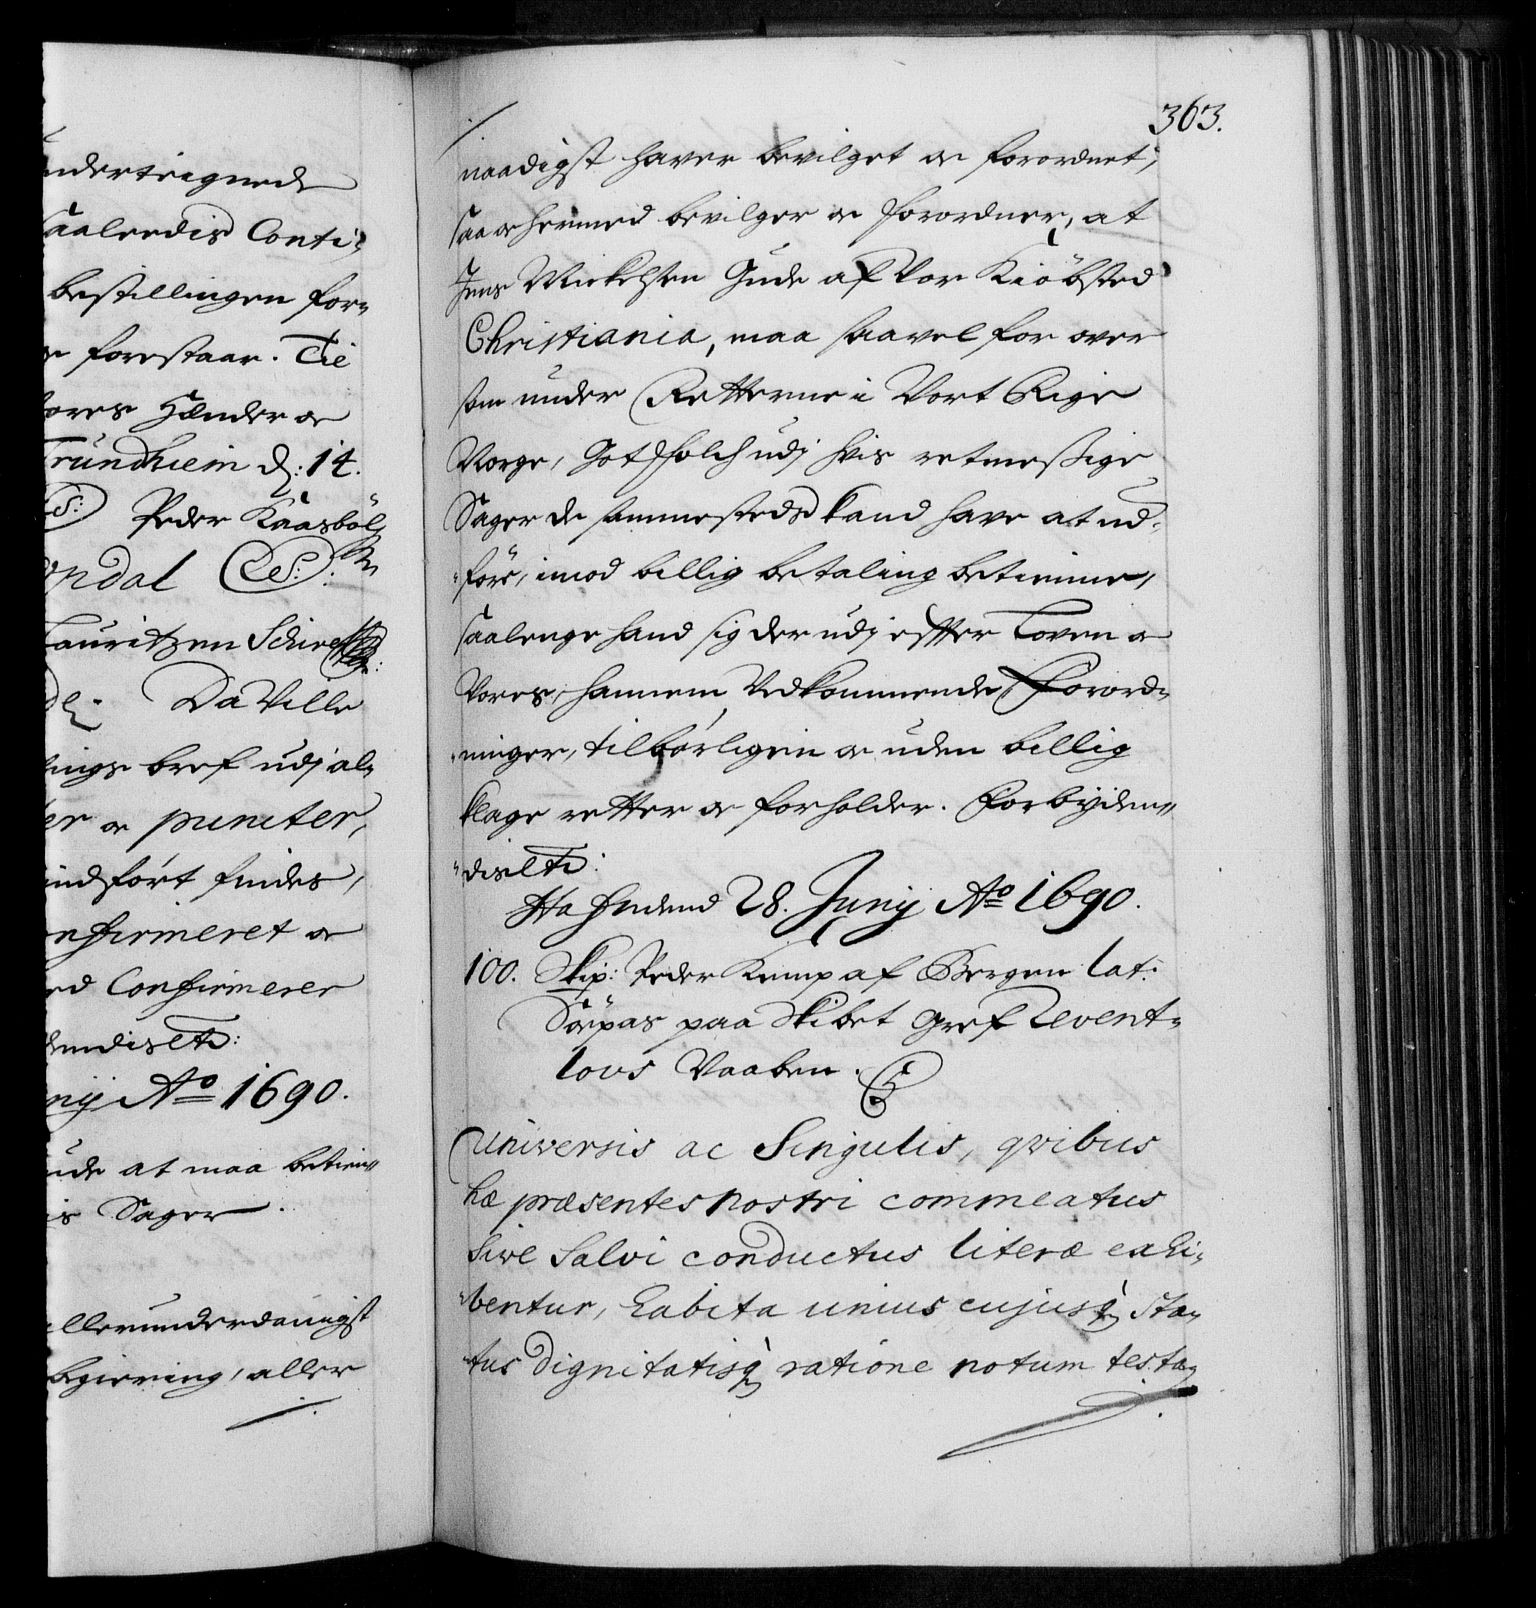 nderteignede
saaleedis Conti-
bestillingen for-
forestaar. Tie
vores Hænder oc
Trundhiem d: 14.
Peder Kaasböl
ondal
Lauritzen
Da Ville
nings bref udj al-
er oc puncter,
indfört findes,
onfirmeret oc
ed Confirmerer
dendis etc:
nij Ao 1690.
ude at maa betien-
is Sager.
allerunderdanigst
begiering, aller
363.
naadigst hafver bevilget oc forordnet,
saa oc hermed bevilger oc forordner, at
Jens Mickelsen Gude af Vor Kiöbsted
Christiania, maa saavel for over
som under Retterne i Vort Rige
Norge, Got Folch udj hvis retmessige
Sager de sammesteds kand have at ud-
före, imod billig betaling betienne,
saalenge hand sig der udj effter Loven oc
Vores, hannem Vedkommende Forord-
ninger, tilbörligen oc uden billig
klage retter oc forholder. Forbydend-
dis etc:
Hafn den 28. Junij Ao 1690.
100. Skip: Peder Kemp af Bergen lat:
Söepas paa Skibet Gref Revent-
lous Vaaben.
Universis ac Singulis, qvibus
hæ præsentes nostri commeatus
Sive Salvi conductus literæ exhi-
bentur, habita unius cujusq; sta-
tus dignitatisq; ratione notum testa-